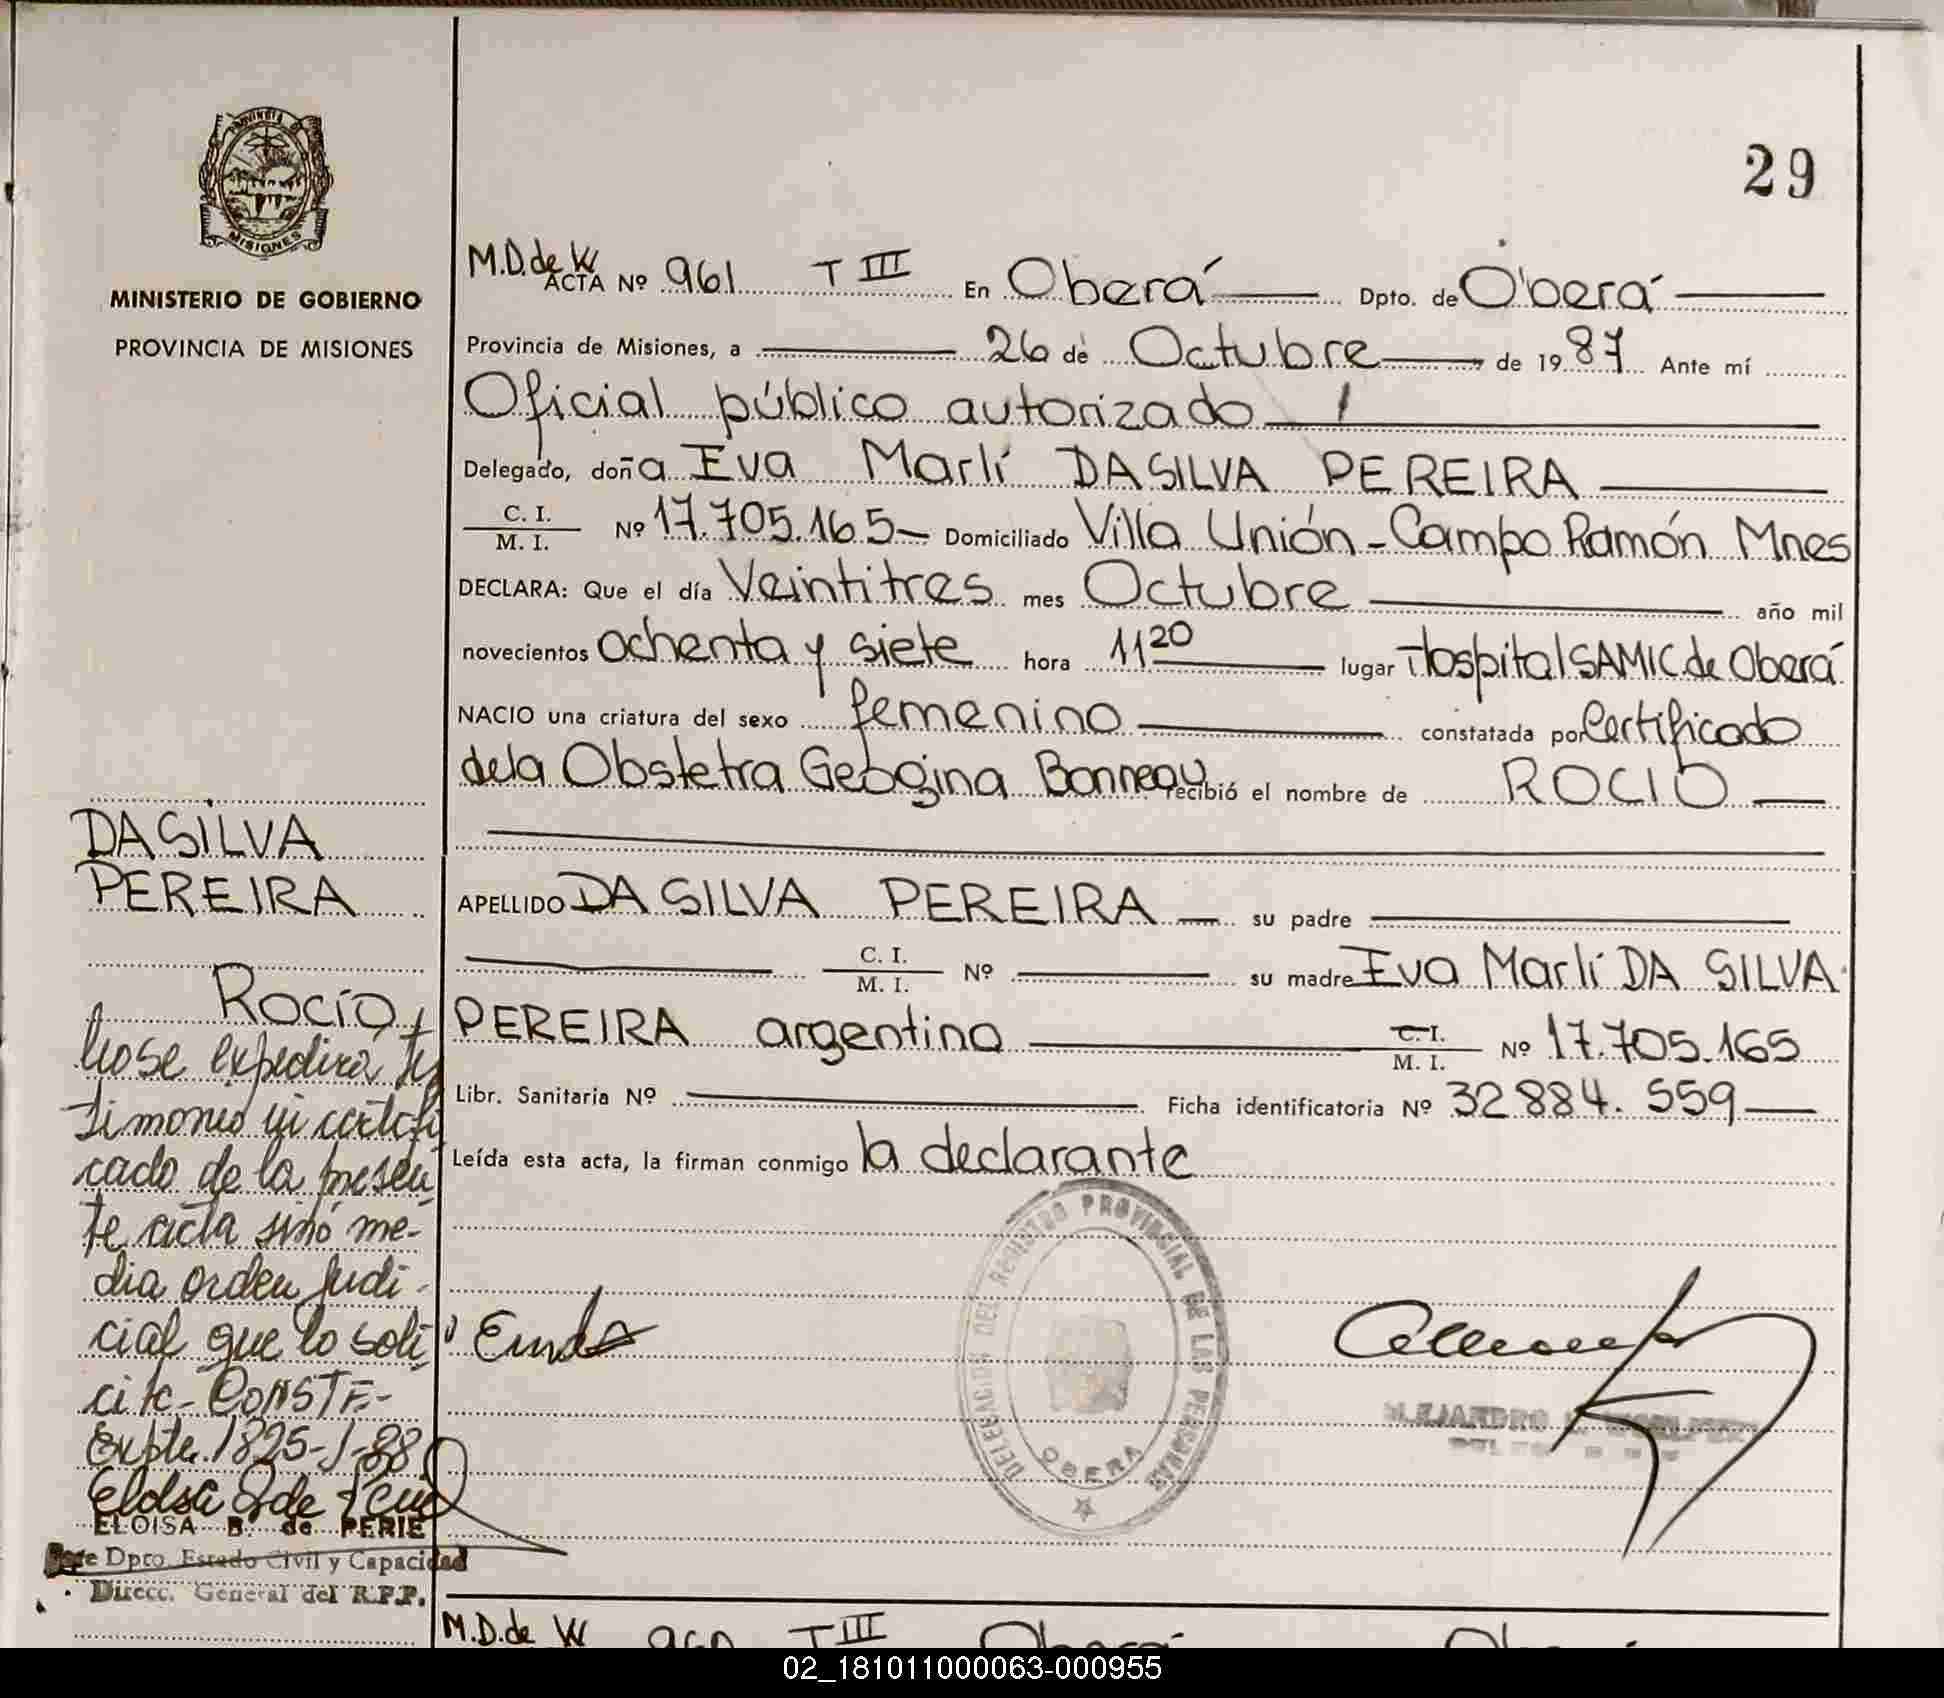 PROVINCIA D
MISIONES
MINISTERIO DE GOBIERNO
PROVINCIA DE MISIONES
29
M.D. de W
ACTA Nº 961 T III En Oberá Dpto. de Oberá
Provincia de Misiones, a 26 de Octubre de 1987 Ante mí
Oficial público autorizado
Delegado, doña Eva Marlí DA SILVA PEREIRA
C. I.
M. I. Nº 17.705.165- Domiciliado Villa Unión - Campo Ramón Mnes
DECLARA: Que el día Veintitres mes Octubre año mil
novecientos ochenta y siete hora 11 20 lugar Hospital SAMIC de Oberá
NACIO una criatura del sexo femenino constatada por Certificado
de la Obstetra Georgina Bonneau recibió el nombre de ROCIO
APELLIDO DA SILVA PEREIRA su padre
C. I.
M. I. Nº su madre Eva Marlí DA SILVA
PEREIRA argentina C. I.
M. I. Nº 17.705.165
Libr. Sanitaria Nº Ficha identificatoria Nº 32.884.559
Leída esta acta, la firman conmigo la declarante
DELEGACION DEL REGISTRO PROVINCIAL DE LAS PERSONAS
OBERA
ALEJANDRO
DA SILVA
PEREIRA
Rocío
No se expedirá tes
timonio ni certifi
cado de la presen
te acta sinó me-
dia orden judi-
cial que lo soli
cite - CONSTE.-
Expte. 1825-J-88
ELOISA B. de PERIE
Jefe Dpto. Estado Civil y Capacidad
Direcc. General del R.P.P.
M.D. de W 960 T III Oberá
02_181011000063-000955